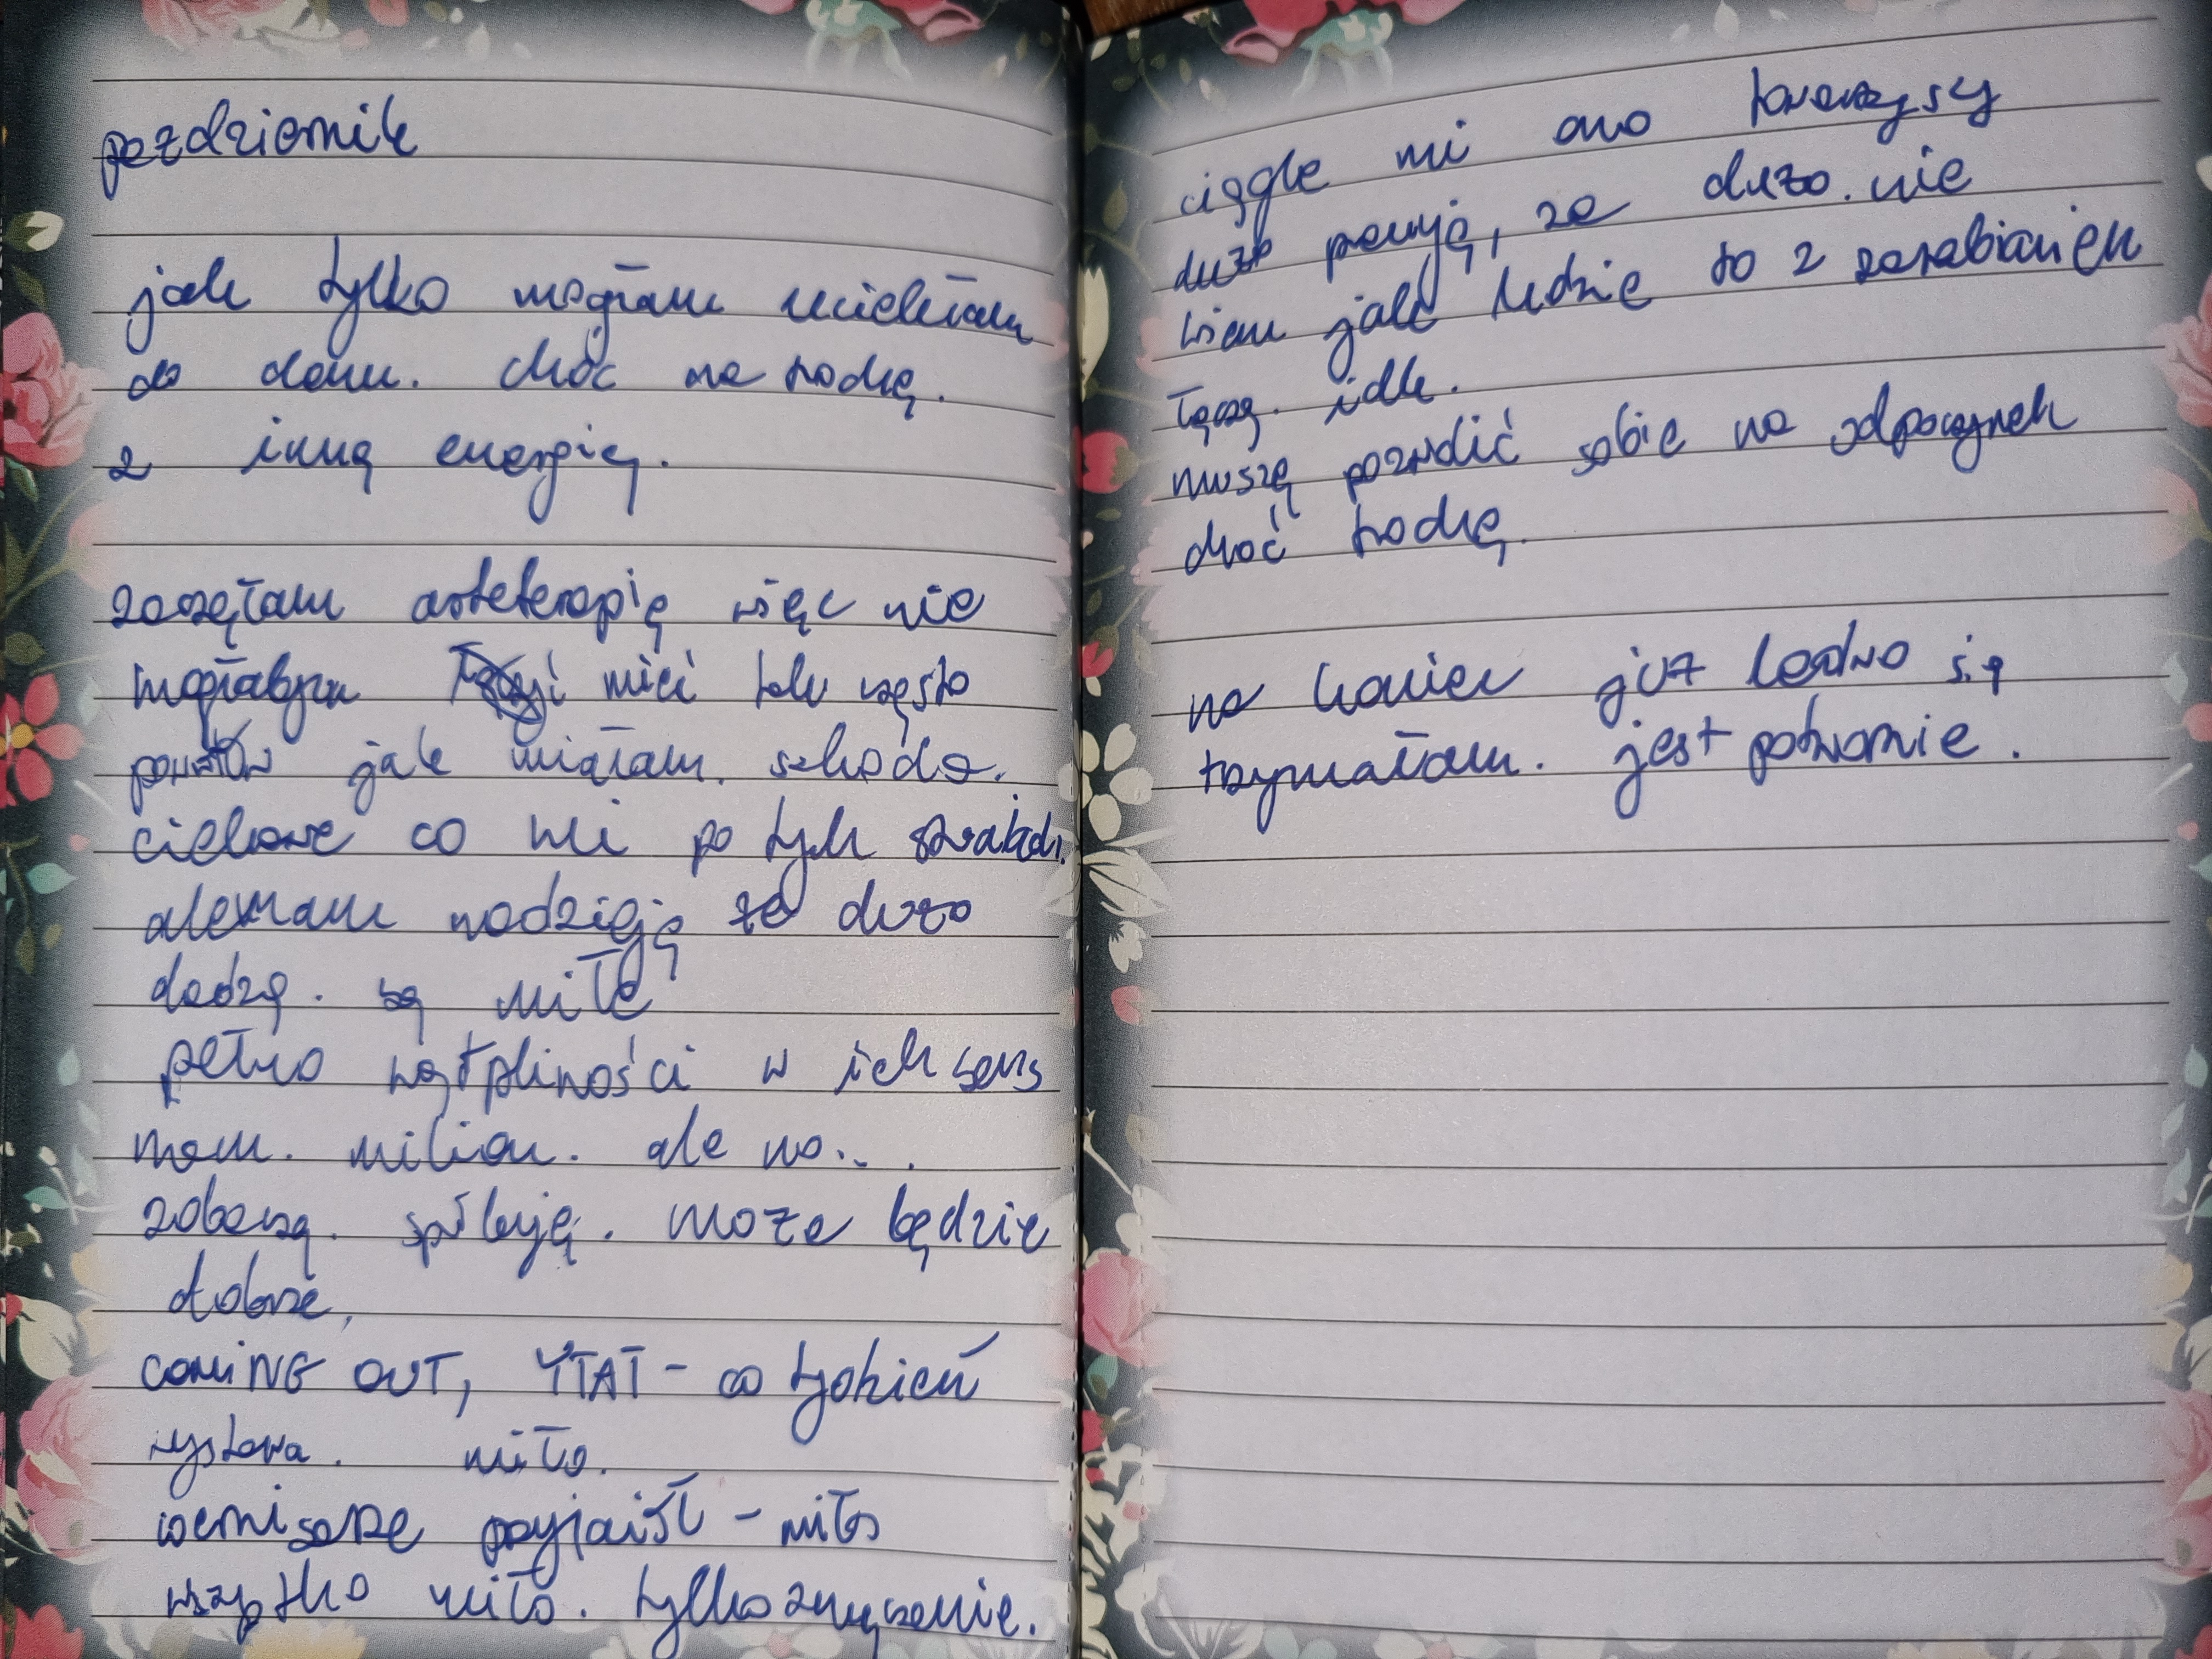 pazdziernik
jak tylko mogłam uciekłam
do domu. choć na trochę.
z inną energią.
zaczęłam arteterapię więc nie
mogłabym mieć tak często
powrotów jak miałam. szkoda.
ciekawe co mi po tych
ale mam nadzieję że dużo
dadzą. są miłe
pełno wątpliwości w ich sens
mam. milion. ale no...
zobaczą. spróbuję. może będzie
dobrze,
COMING OUT, YTAT - co tydzień
wystawa. miło.
wernisaże przyjaciół - miło
wszystko miło. tylko zmęczenie.
ciągle mi ono towarzyszy
dużo pracuję, za dużo. nie
wiem jak ludzie to z zarabianiem
łączą. idk.
muszę pozwolić sobie na odpoczynek
choć trochę.
na koniec już ledwo się
trzymałam. jest potwornie.